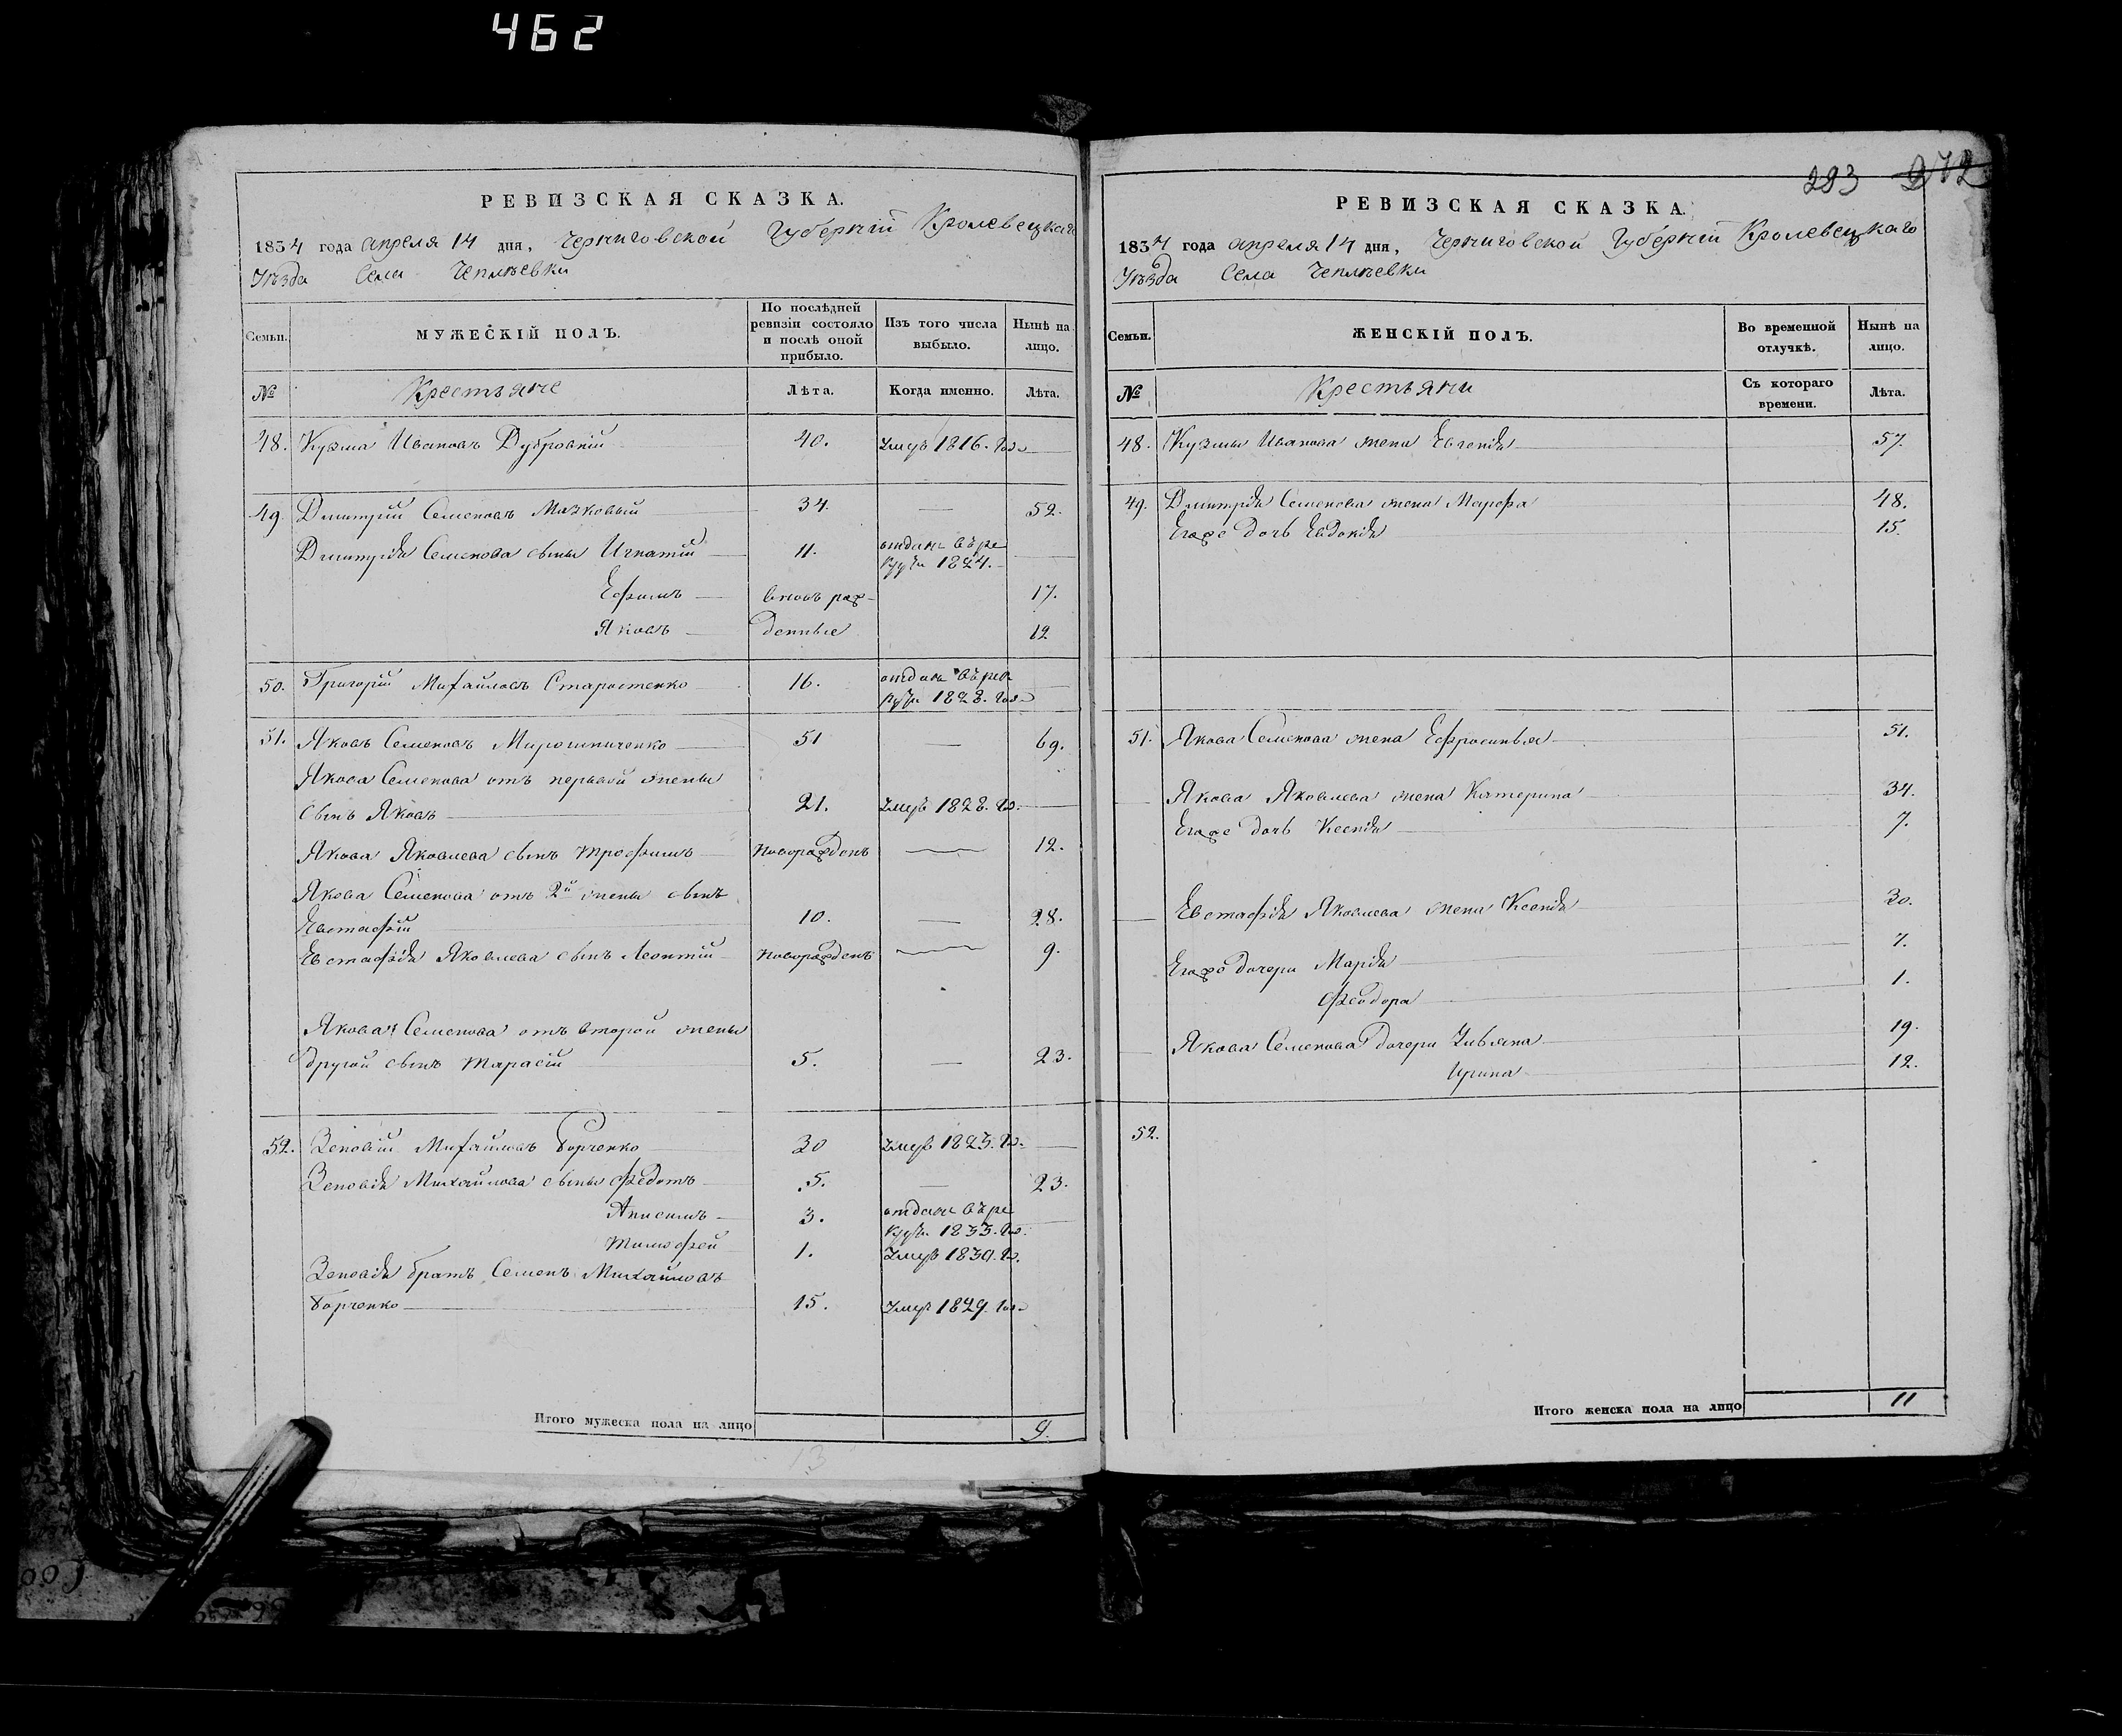 462
РЕВИЗСКАЯ СКАЗКА.
1834 года апреля 14 дня, Черниговской Губерніи Кролевецкаго
Уѣзда Села Чеплѣевки
Семьи.
МУЖЕСКІЙ ПОЛЪ.
По послѣдней ревизіи состояло и послѣ оной прибыло.
Изъ того числа выбыло.
Нынѣ на лицо.
№ Крестьяне Лѣта. Когда именно. Лѣта.
48. Кузма Ивановъ Дубровкій 40. Умръ 1816. го
49. Дмитрій Семеновъ Мачковый 34. — 52.
Дмитрія Семенова сыны Игнатій 11. отданъ въ ре
круты 1824.
Ефимъ — вновь рож- 17.
Яковъ — денные 12
50. Григорій Михайловъ Старостенко 16. отданъ въ рек
руты 1828. го
51. Яковъ Семеновъ Мирошниченко 51 — 69.
Якова Семенова отъ первой жены
сынъ Яковъ 21. Умръ 1828. го.
Якова Яковлева сынъ Трофимъ новорожденъ — 12.
Якова Семенова отъ 2й жены сынъ
Евстафій 10. — 28.
Евстафія Яковлева сынъ Леонтій новорожденъ — 9.
Якова Семенова отъ второй жены
другой сынъ Тарасій 5. — 23.
52. Зеновій Михайловъ Борченко 30 Умръ 1825. го.
Зеновія Михайлова сыны Федотъ 5. — 23.
Анисимъ 3. отданъ въ ре
круты 1833. го.
Тимофей 1. Умръ 1830. го.
Зеновія братъ Семенъ Михайловъ
Борченко 15. Умръ 1829. го
Итого мужеска пола на лицо 9.
13
293 272
РЕВИЗСКАЯ СКАЗКА.
1834 года апреля 14 дня, Черниговской Губерніи Кролевецкаго
Уѣзда Села Чеплѣевки
Семьи.
ЖЕНСКІЙ ПОЛЪ.
Во временной отлучкѣ.
Нынѣ на лицо.
№ Крестьянки Съ котораго времени. Лѣта.
48. Кузмы Иванова жена Евгенія 57.
49. Дмитрія Семенова жена Марфа 48.
Егоже дочь Евдокія 15.
51. Якова Семенова жена Ефросинья 51.
Якова Яковлева жена Катерина 34.
Егоже дочь Ксенія 7.
Евстафія Яковлева жена Ксенія 30.
Егоже дочери Марія 7.
Феодора 1.
Якова Семенова дочери Ульяна 19.
Ирина 12.
52.
Итого женска пола на лицо 11